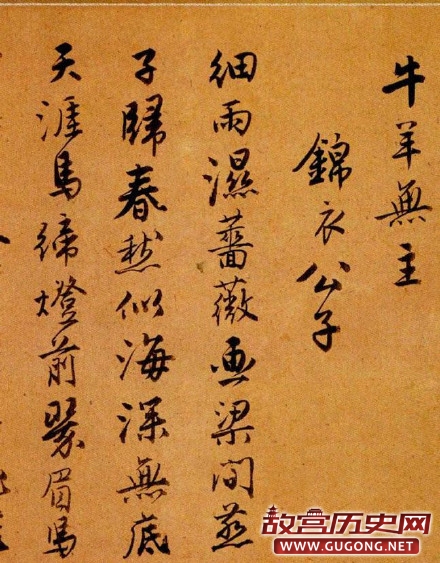 牛羊無主
錦衣公子
細雨濕薔薇画梁間燕
子歸春愁似海深無底
天涯馬締燈前翠眉馬
故宫历史网
WWW.GUGONG.NET